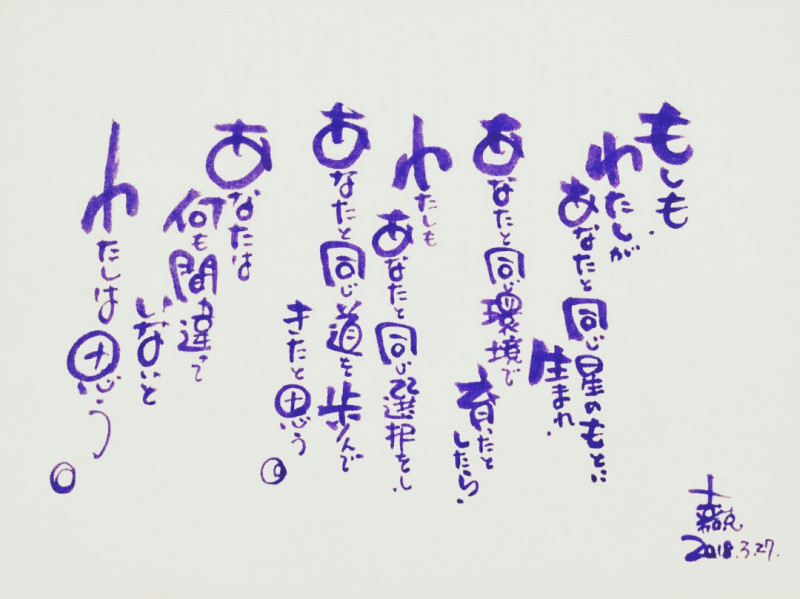 もしも、
わたしが
あなたと同じ星のもとに
生まれ、
あなたと同じ環境で
育ったと
したら、
わたしも
あなたと同じ選択をし、
あなたと同じ道を歩んで
きたと思う。
あなたは
何も間違って
いないと
わたしは思う。
2018.3.27.